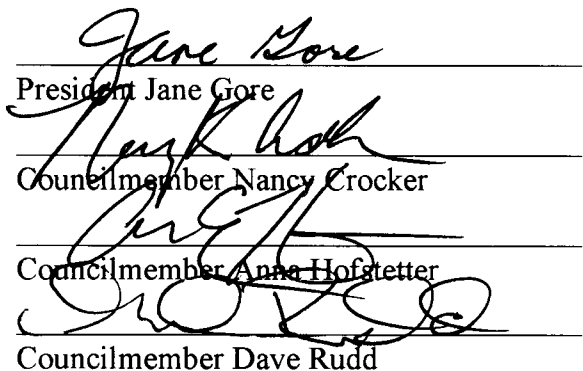 Jane Gore
President Jane Gore
Councilmember Nancy Crocker
Councilmember Anna Hofstetter
Councilmember Dave Rudd